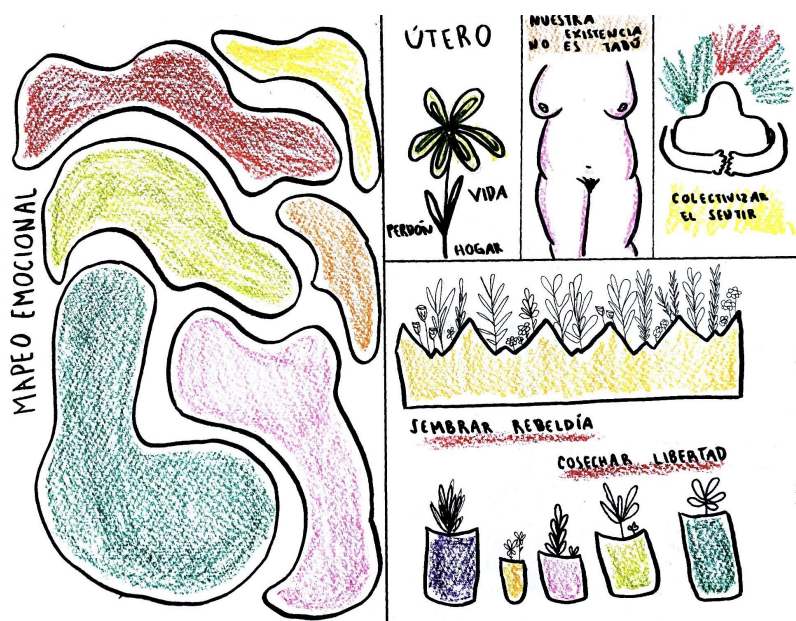 MAPEO EMOCIONAL
ÚTERO
VIDA
PERDÓN
HOGAR
NUESTRA
EXISTENCIA
NO ES TABÚ
COLECTIVIZAR
EL SENTIR
SEMBRAR REBELDÍA
COSECHAR LIBERTAD